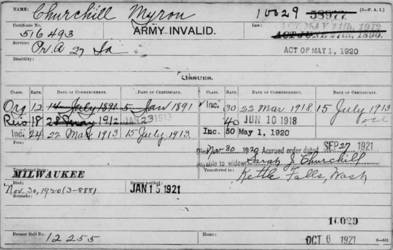 NAME: Churchill Myron 10029 38977
Certificate No. 516493 ARMY INVALID. ACT OF MAY 11TH, 1912
Service: Pv. A 27 Ia ACT OF MAY 1, 1920
Disability:
ISSUES.
CLASS. RATE. DATE OF COMMENCEMENT. DATE OF CERTIFICATE. CLASS. RATE. DATE OF COMMENCEMENT. DATE OF CERTIFICATE.
Org 12 14 July 1891 5 Jan 1891 Inc. 30 22 Mar 1918 15 July 1913
18 28 May 1912 40 JUN 10 1918
Inc. 24 22 Mar 1913 15 July 1913. Inc. 50 May 1, 1920
Nov 30 1920 Accrued order dated SEP 27 1921
payable to widow Sarah J. Churchill
MILWAUKEE Kettle Falls, Wash
Nov. 30, 1920 (3-888) JAN 15 1921
10029
12255 OCT 6 1921